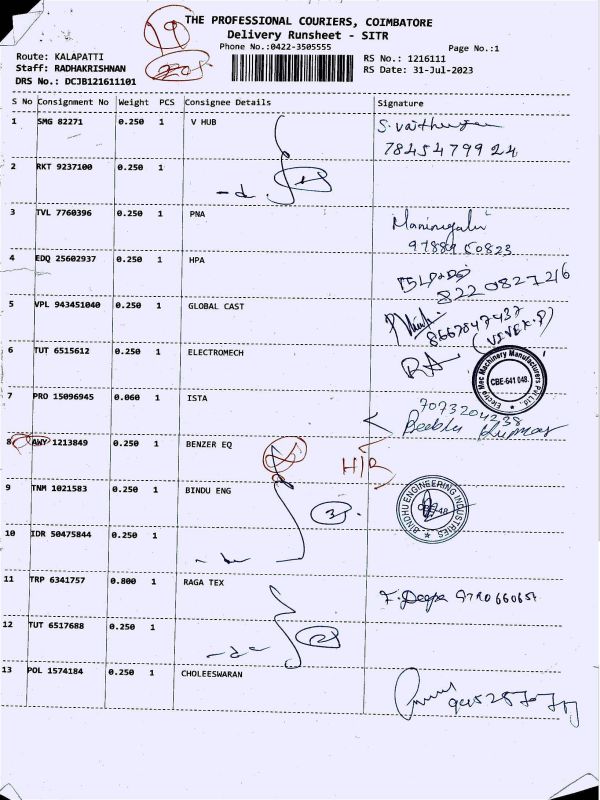 19
THE PROFESSIONAL COURIERS, COIMBATORE
Delivery Runsheet - SITR
Phone No.:0422-3505555
Page No.:1
Route: KALAPATTI
RS No.: 1216111
Staff: RADHAKRISHNAN
RS Date: 31-Jul-2023
DRS No.: DCJB121611101
S No Consignment No Weight PCS Consignee Details Signature
1 SMG 82271 0.250 1 V HUB
7845479924
2 RKT 9237100 0.250 1
3 TVL 7760396 0.250 1 PNA
4 EDQ 25602937 0.250 1 HPA
8220827216
5 VPL 943451040 0.250 1 GLOBAL CAST
8667847437
(VIVEK.P)
6 TUT 6515612 0.250 1 ELECTROMECH
Electro Mec Machinery Manufacturers Pvt Ltd.
CBE-641 048.
7 PRO 15096945 0.060 1 ISTA
7073204238
8 AWY 1213849 0.250 1 BENZER EQ
H/R
9 TNM 1021583 0.250 1 BINDU ENG
3
BINDHU ENGINEERING INDUSTRIES
10 IDR 50475844 0.250 1
11 TRP 6341757 0.800 1 RAGA TEX
F. Deepa
12 TUT 6517688 0.250 1
2
13 POL 1574184 0.250 1 CHOLEESWARAN